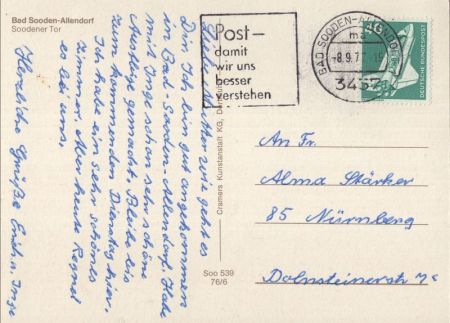 Bad Sooden-Allendorf
Soodener Tor
Liebe Mutter wie geht es
Dir, Ich bin gut angekommen
in Bad-Sooden-Allendorf. Habe
mit Inge schon sehr schöne
Ausflüge gemacht. Bleibe bis
zum kommenden Dienstag hier.
Ich habe ein sehr schönes
Zimmer. Aber heute Regnet
es bei uns.
Herzliche Grüße Erich u. Inge
Post-
damit
wir uns
besser
verstehen
BAD SOODEN-ALLENDORF
ma
-8.9.7
3437
DEUTSCHE BUNDESPOST
Cramers Kunstanstalt KG, Dortmund
Soo 539
76/6
An Fr.
Alma Stärker
85 Nürnberg